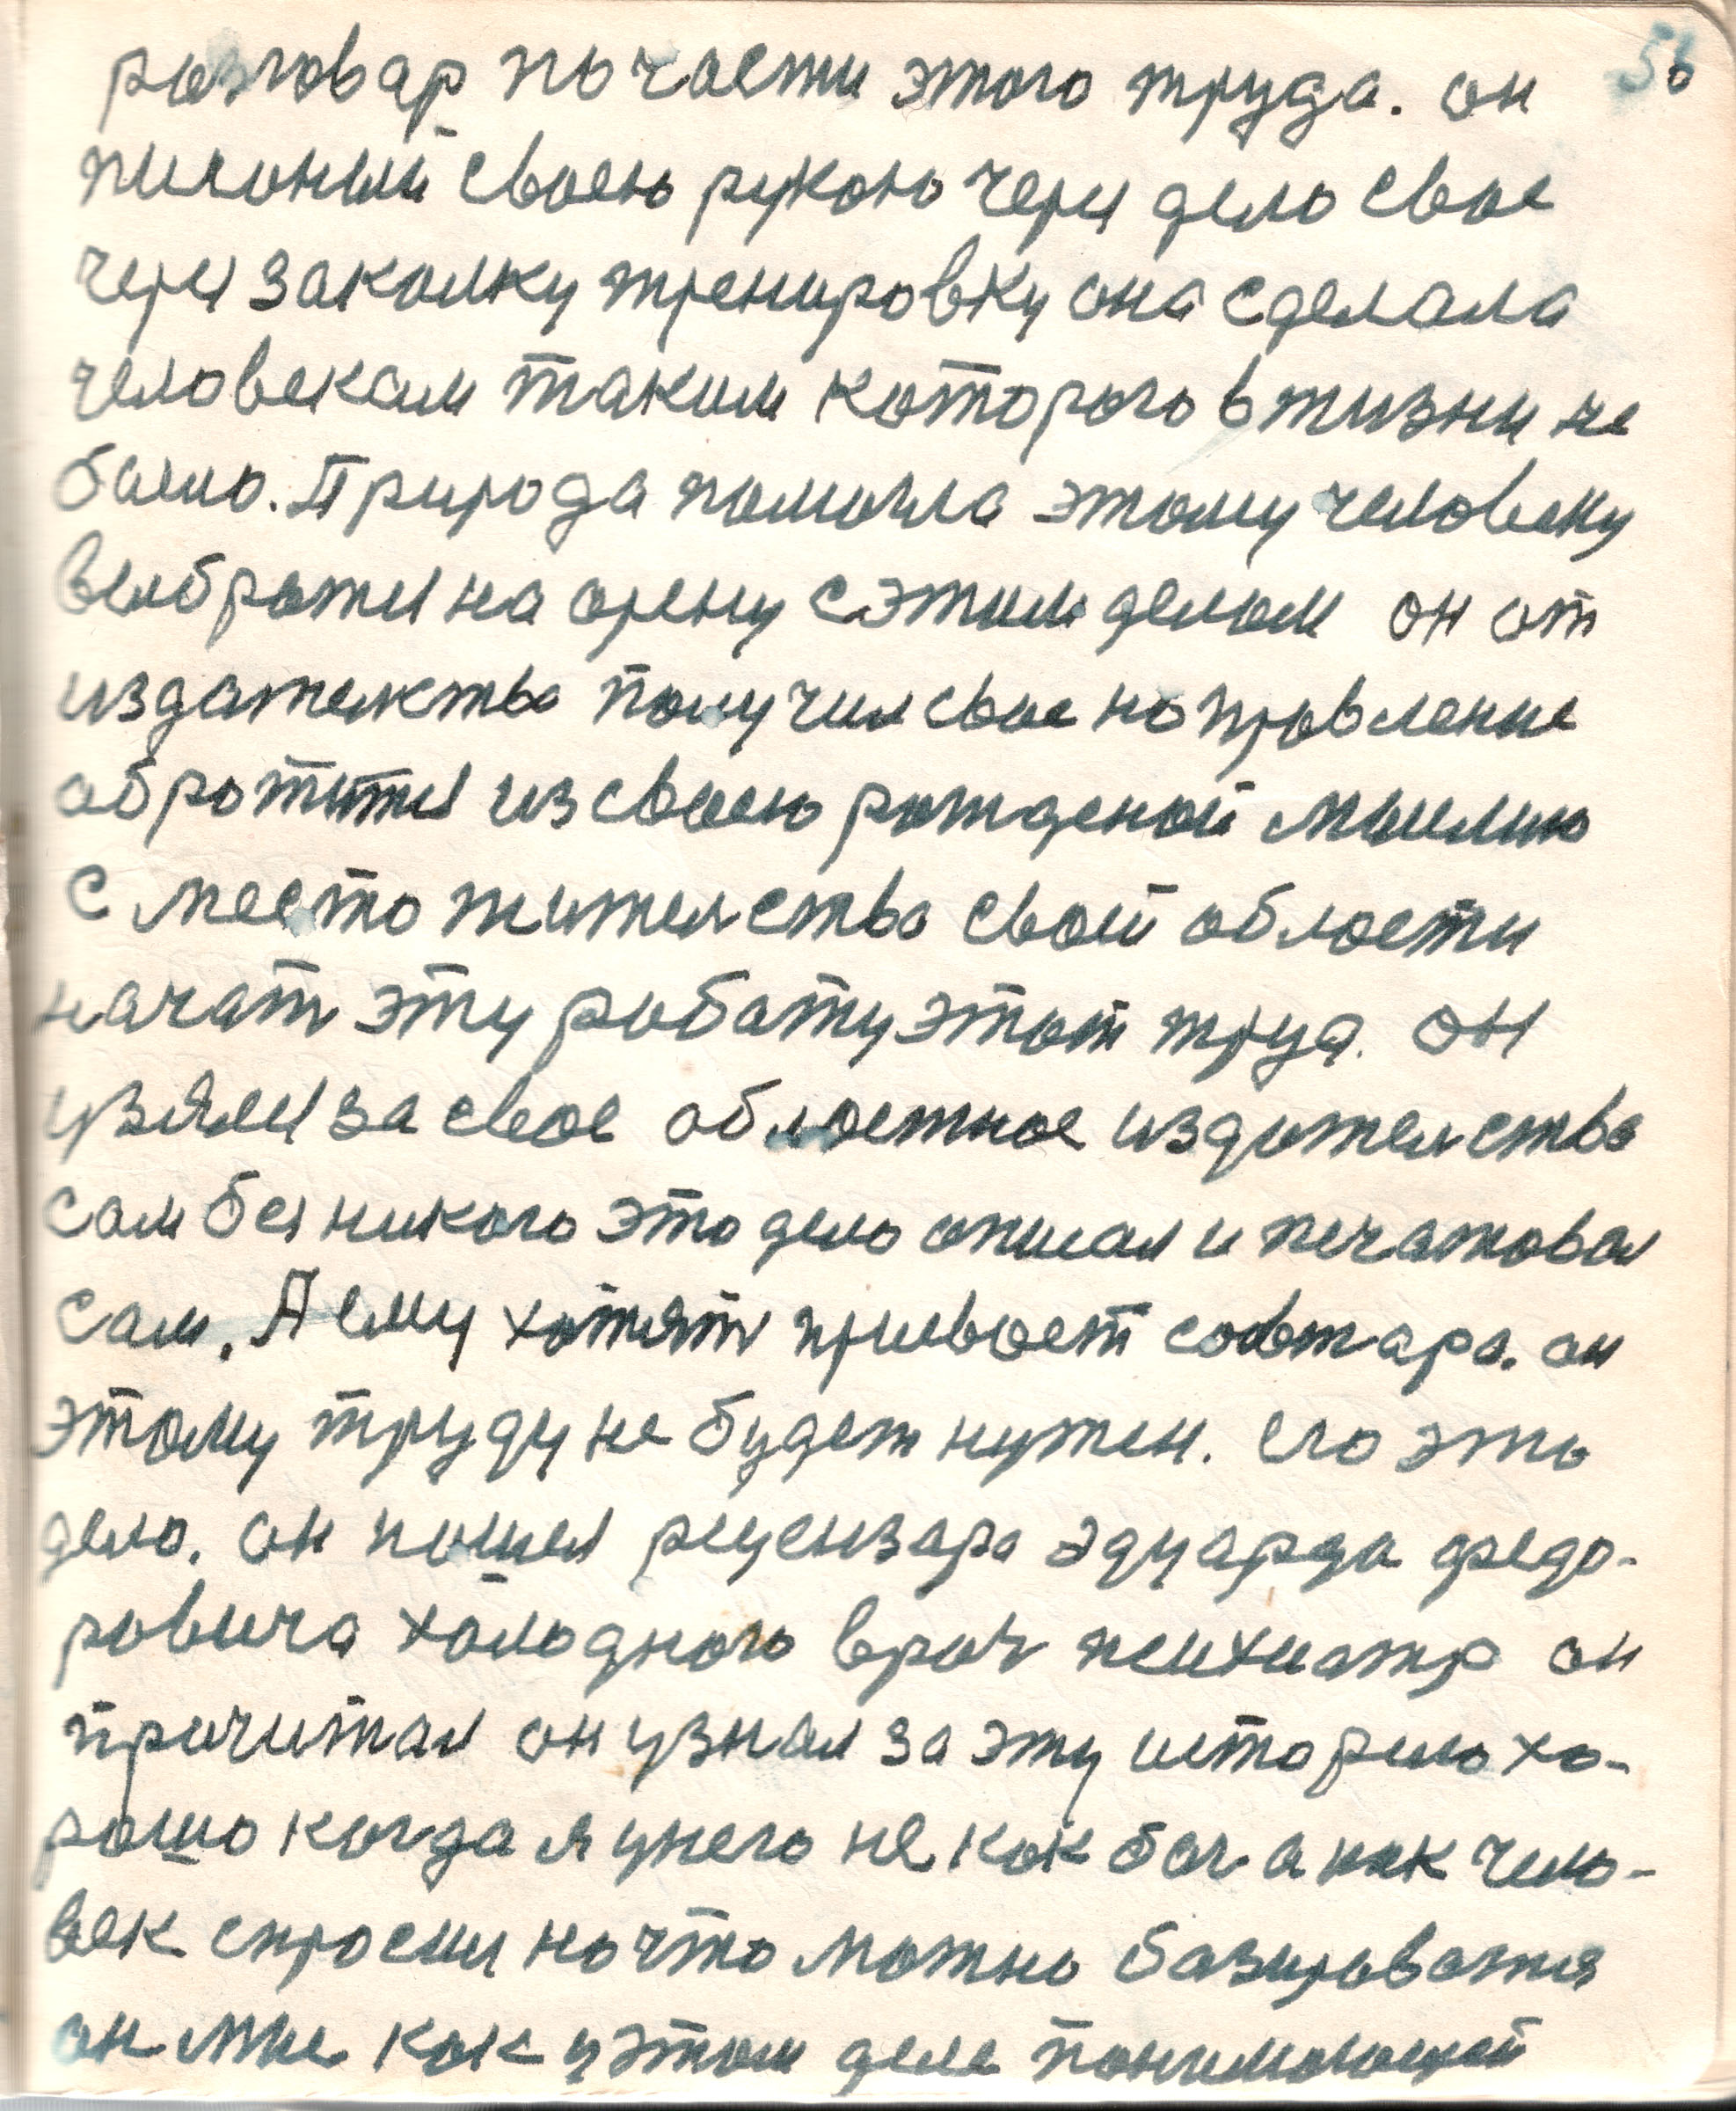 56
разговар по части этого труда. он
писоный своею рукою через дело свое
через заколку тренировку она сделала
человекам таким которого в жизни не
было. Природа помогла этому человеку
выбратися на арену с этим делом он от
издателства получил свое направление
обротитися из своею рожденой мыслию
с место жителства свой области
начать эту работу этот труд. он
узялся за свое областное издателство
сам без никого это дело описал и печатовал
сам. А ему хотять привест соавтара. он
этому труду не будет нужен. его это
дело. он нашел рецензара Эдуарда Федо-
ровича холодного врач психиатр он
прочитал он узнал за эту историю хо-
рошо когда я у него не как бог а как чело-
век спросил на что можно базироватся
он мне как у этом деле понимающей